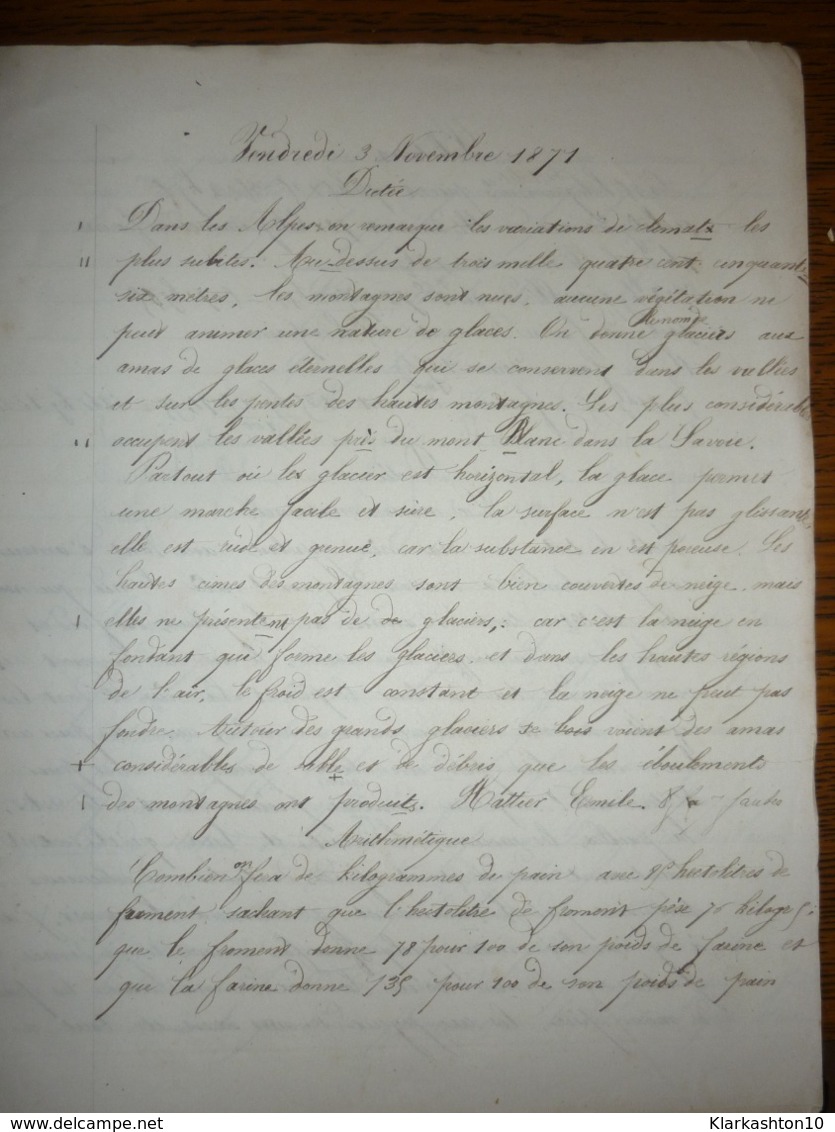 Vendredi 3 Novembre 1871
Dictée
Dans les Alpes on remarque les variations de climats les
plus subites. Au-dessus de trois mille quatre cent cinquante
six mètres, les montagnes sont nues, aucune végétation ne
peut animer une nature de glaces. On donne le nom de glaciers aux
amas de glaces éternelles qui se conservent dans les vallées
et sur les pentes des hautes montagnes. Les plus considérables
occupent les vallées près du mont Blanc dans la Savoie.
Partout où le glacier est horizontal, la glace permet
une marche facile et sûre, la surface n'est pas glissante
elle est rude et grenue, car la substance en est poreuse. Les
hautes cimes des montagnes sont bien couvertes de neige, mais
elles ne présentent pas de glaciers, car c'est la neige en
fondant qui forme les glaciers, et dans les hautes régions
de l'air, le froid est constant et la neige ne peut pas
fondre. Autour des grands glaciers se voient des amas
considérables de sable et de débris que les éboulements
des montagnes ont produits. Hattier Emile. 8 fautes
Arithmétique
Combien on fera de kilogrammes de pain avec 85 hectolitres de
froment sachant que l'hectolitre de froment pèse 76 kilog 5;
que le froment donne 78 pour 100 de son poids de farine et
que la farine donne 135 pour 100 de son poids de pain
Klarkashton10